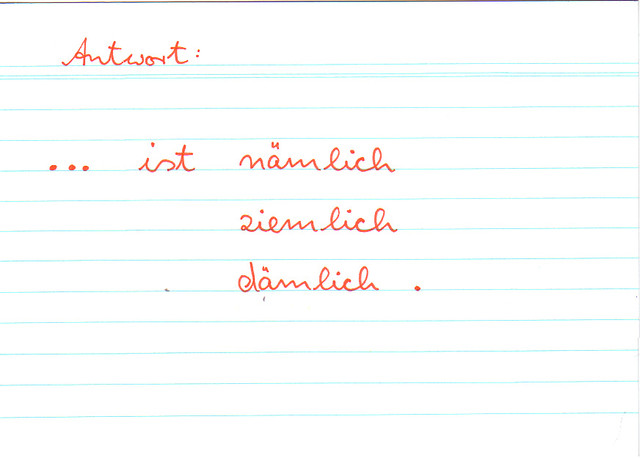 Antwort:
... ist nämlich
ziemlich
dämlich.